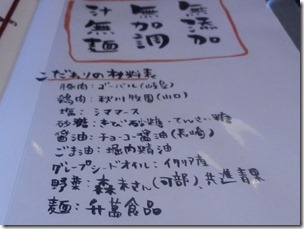 無添加
無加調
汁無麺
こだわりの材料表
豚肉：ゴーバル(岐阜)
鶏肉：秋川牧園(山口)
塩：シママース
砂糖：きび砂糖・てんさい糖
醤油：チョーコー醤油(長崎)
ごま油：堀内精油
グレープシードオイル：イタリア産
野菜：森末さん(可部)、共進青果
麺：升萬食品